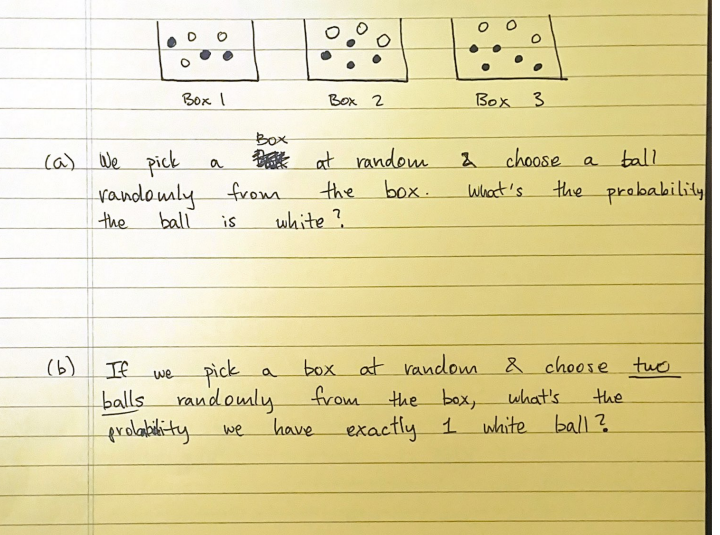 Box 1 Box 2 Box 3
Box
(a) We pick a at random & choose a ball
randomly from the box. What's the probability
the ball is white?
(b) If we pick a box at random & choose two
balls randomly from the box, what's the
probability we have exactly 1 white ball?